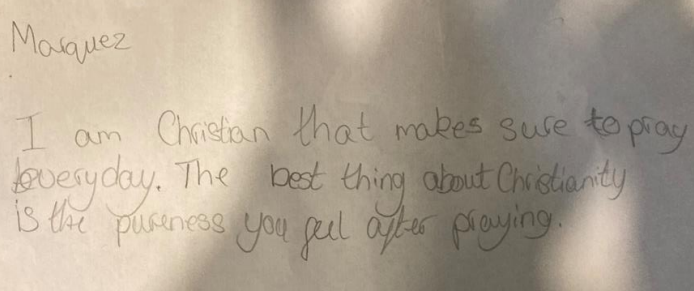 Marquez
I am Christian that makes sure to pray
everyday. The best thing about Christianity
is the pureness you feel after praying.